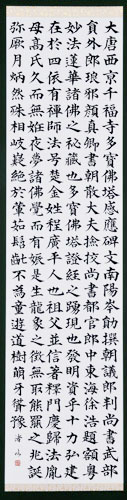 大唐西京千福寺多寶佛塔感應碑文南陽岑勛撰朝議郎判尚書武部
員外郎琅邪顏真卿書朝散大夫撿校尚書都官郎中東海徐浩題額粵
妙法蓮華諸佛之秘藏也多寶佛塔證經之踴現也發明資乎十力弘建
在於四依有禪師法号楚金姓程廣平人也祖父並信著釋門慶歸法胤
母高氏久而無姙夜夢諸佛覺而有娠是生龍象之徵無取熊羆之兆誕
弥厥月炳然殊相岐嶷絕於葷茹髫齔不為童遊道樹萌牙聳豫